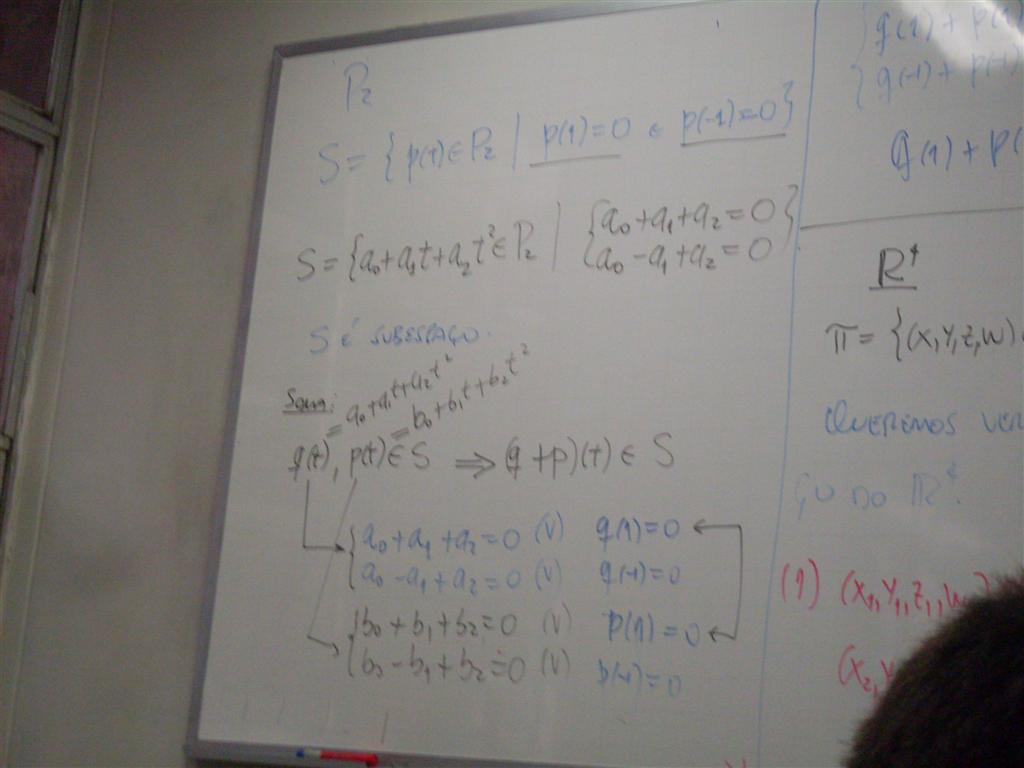 P₂
S = { p(t) ∈ P₂ | p(1)=0 e p(-1)=0 }
S = {a₀+a₁t+a₂t² ∈ P₂ | { a₀+a₁+a₂=0 }
a₀-a₁+a₂=0
S É SUBESPAÇO.
Soma:
= a₀+a₁t+a₂t²
= b₀+b₁t+b₂t²
q(t), p(t) ∈ S ⟹ (q+p)(t) ∈ S
{ a₀+a₁+a₂=0 (V) q(1)=0
a₀-a₁+a₂=0 (V) q(-1)=0
{ b₀+b₁+b₂=0 (V) p(1)=0
b₀-b₁+b₂=0 (V) p(-1)=0
{ q(1) + p(1)
q(-1) + p(-1)
q(1) + p(
R⁴
π = {(x,y,z,w)
QUEREMOS VER
ÇO DO R⁴.
(1) (x₁,y₁,z₁,w₁)
(x₂,y